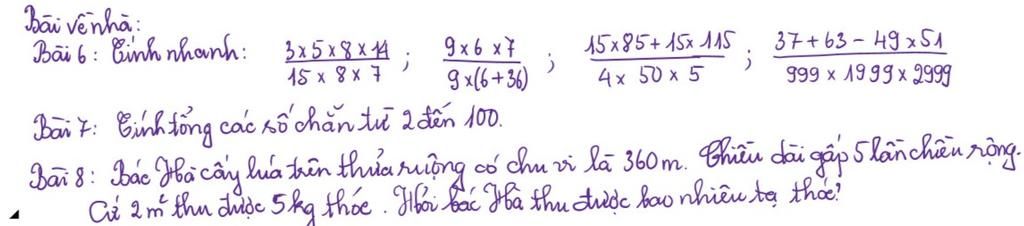 Bài về nhà:
Bài 6: Tính nhanh: 3 x 5 x 8 x 14 / 15 x 8 x 7 ; 9 x 6 x 7 / 9 x (6 + 36) ; 15 x 85 + 15 x 115 / 4 x 50 x 5 ; 37 + 63 - 49 x 51 / 999 x 1999 x 2999
Bài 7: Tính tổng các số chẵn từ 2 đến 100.
Bài 8: Bác Hà cấy lúa trên thửa ruộng có chu vi là 360m. Chiều dài gấp 5 lần chiều rộng.
Cứ 2m² thu được 5kg thóc. Hỏi bác Hà thu được bao nhiêu tạ thóc?